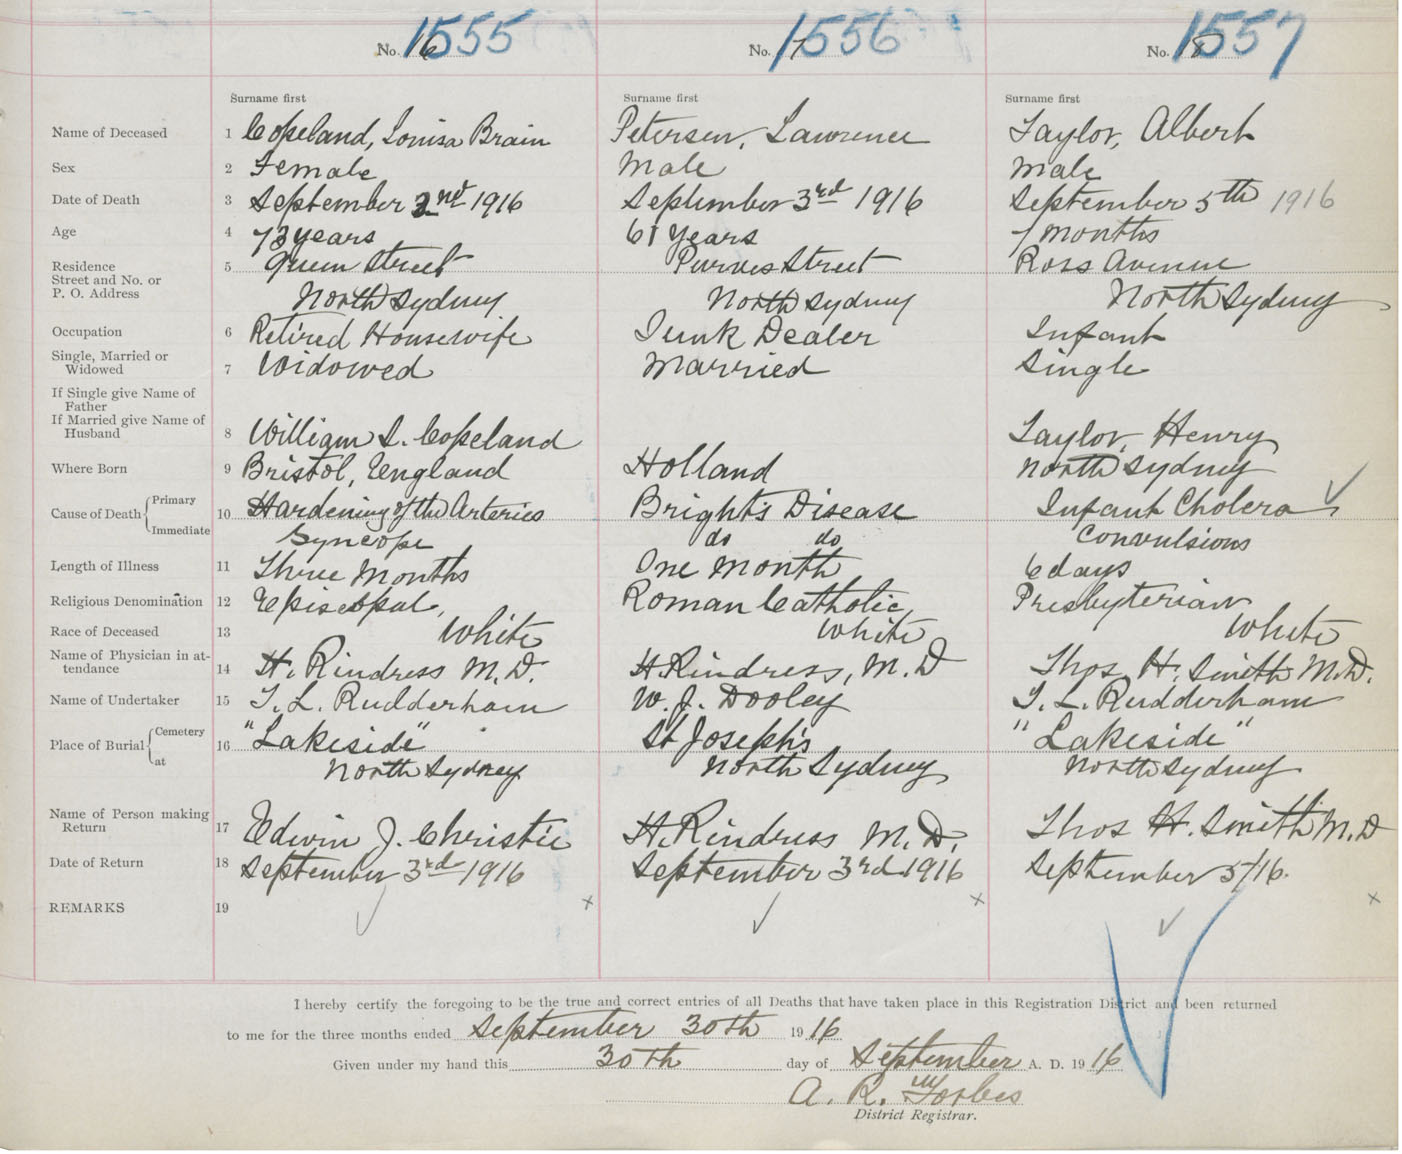 No. 16 1555 No. 17 1556 No. 18 1557
Surname first Surname first Surname first
Name of Deceased 1 Copeland, Louisa Brain Petersen, Lawrence Taylor, Albert
Sex 2 Female Male Male
Date of Death 3 September 2nd 1916 September 3rd 1916 September 5th 1916
Age 4 73 years 61 years 7 months
Residence 5 Queen Street Purves Street Ross Avenue
Street and No. or
P. O. Address North Sydney North Sydney North Sydney
Occupation 6 Retired Housewife Junk Dealer Infant
Single, Married or
Widowed 7 Widowed Married Single
If Single give Name of
Father
If Married give Name of
Husband 8 William S. Copeland Taylor, Henry
Where Born 9 Bristol, England Holland North Sydney
Cause of Death Primary 10 Hardening of the Arteries Bright's Disease Infant Cholera
Immediate Syncope do do Convulsions
Length of Illness 11 Three Months One Month 6 days
Religious Denomination 12 Episcopal, Roman Catholic, Presbyterian
Race of Deceased 13 White White White
Name of Physician in at-
tendance 14 H. Rindress M.D. H. Rindress, M.D Thos. H. Smith M.D.
Name of Undertaker 15 T. L. Rudderham W. J. Dooley T. L. Rudderham
Place of Burial Cemetery 16 "Lakeside" St Joseph's "Lakeside"
at North Sydney North Sydney North Sydney
Name of Person making
Return 17 Edwin J. Christie H. Rindress M.D. Thos H. Smith M.D
Date of Return 18 September 3rd 1916 September 3rd 1916 September 5/16.
REMARKS 19 x x x
I hereby certify the foregoing to be the true and correct entries of all Deaths that have taken place in this Registration District and been returned
to me for the three months ended September 30th 1916
Given under my hand this 30th day of September A. D. 1916
A. R. Forbes
District Registrar.